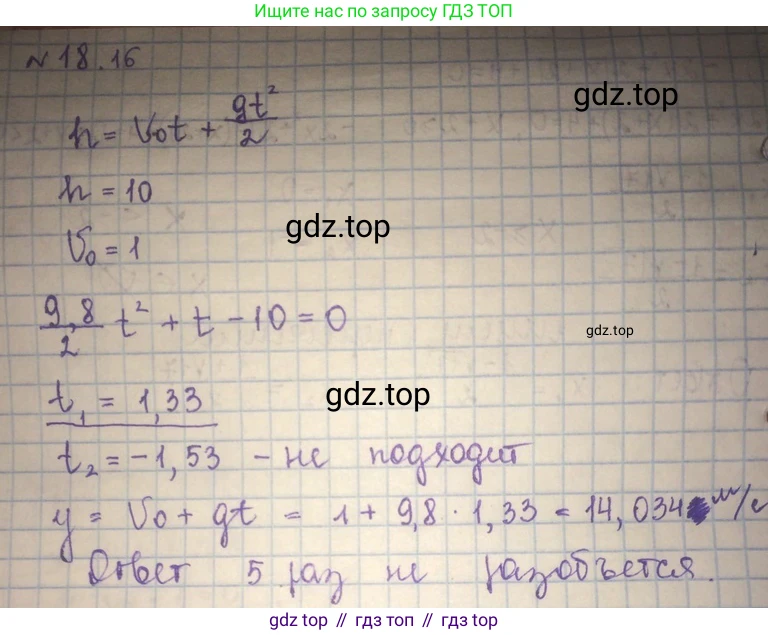 Ищите нас по запросу ГДЗ ТОП
№ 18.16
gdz.top
h = V₀t + gt²/2
h = 10
gdz.top
V₀ = 1
9,8/2 t² + t - 10 = 0
gdz.top
t₁ = 1,33
gdz.top
t₂ = -1,53 - не подходит
y = V₀ + gt = 1 + 9,8 · 1,33 = 14,034 м/с
Ответ 5 раз не разобъется.
gdz.top // гдз топ // gdz.top // гдз top